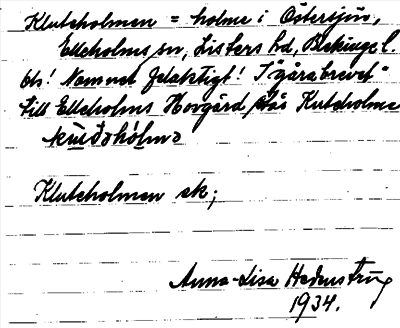 Klutcholmen = holme i Östersjön,
Elleholms sn, Listers hd, Blekinge l.
Obs! Namnet felaktigt! I "gårabrevet"
till Elleholms Hovgård står Kutcholme
Klutcholmen ek;
Anna-Lisa Hedenstrug
1934.